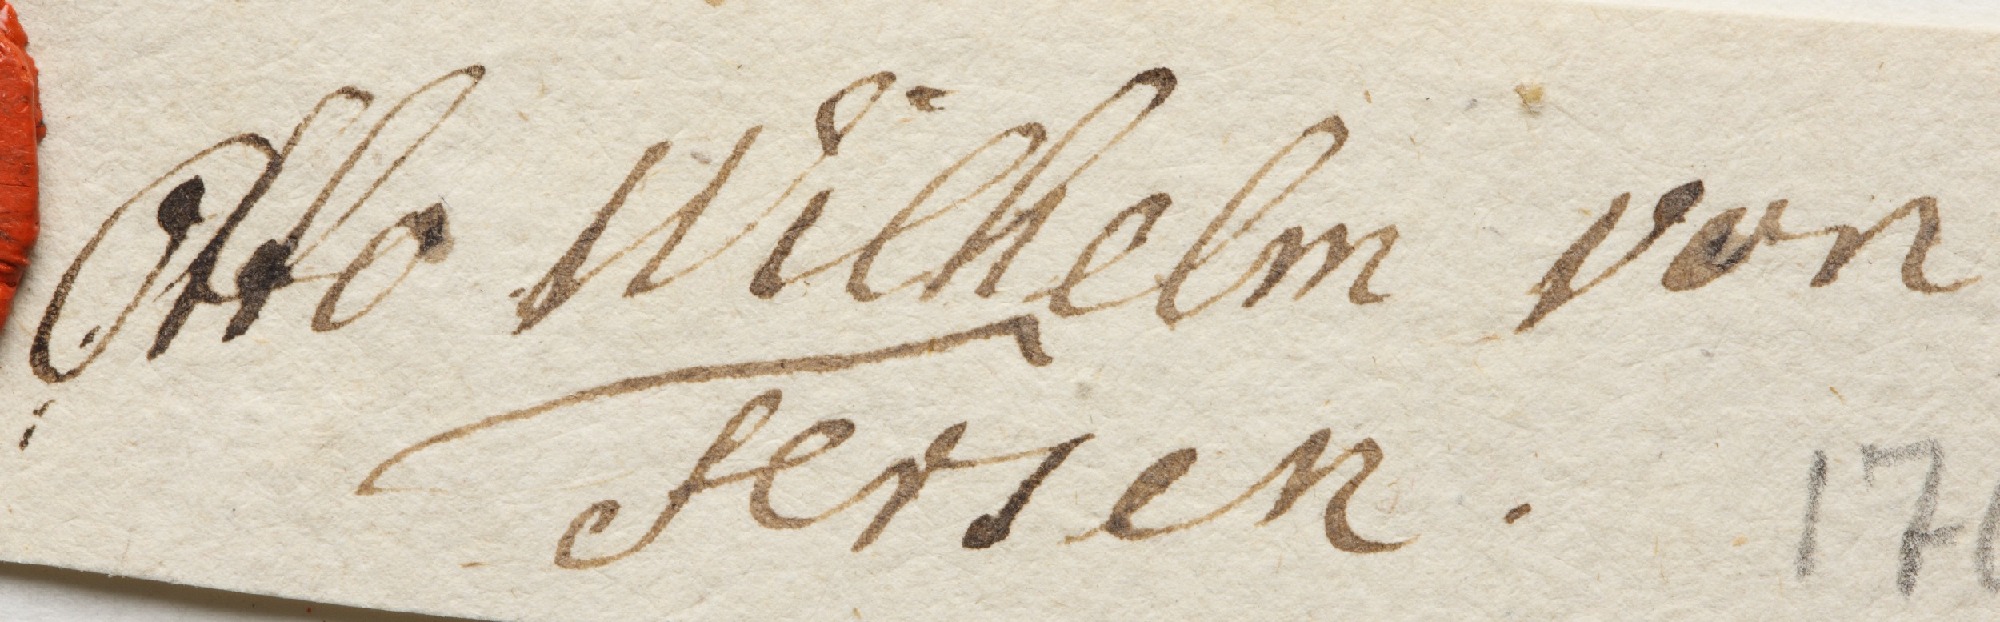 Otto Wilhelm von
Fersen.